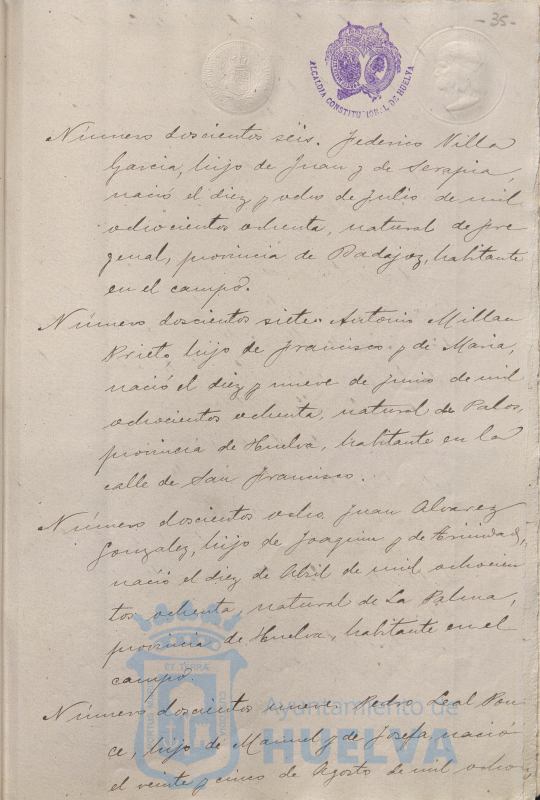 -35-
ALCALDIA CONSTITUCIONAL DE HUELVA
Número doscientos seis. Federico Villa
Garcia, hijo de Juan y de Serapia,
nació el diez y ocho de Julio de mil
ochocientos ochenta, natural de Fre
genal, provincia de Badajoz, habitante
en el campo.
Número doscientos siete. Antonio Millan
Prieto, hijo de Francisco y de Maria,
nació el diez y nueve de junio de mil
ochocientos ochenta, natural de Palos,
provincia de Huelva, habitante en la
calle de San Francisco.
Número doscientos ocho. Juan Alvarez
Gonzalez, hijo de Joaquin y de Trinidad,
nació el diez de Abril de mil ochocien
tos ochenta, natural de La Palma,
provincia de Huelva, habitante en el
campo.
Número doscientos nueve. Pedro Leal Pon
ce, hijo de Manuel y de Josefa, nació
el veinte y cinco de Agosto de mil ocho
Ayuntamiento de
HUELVA